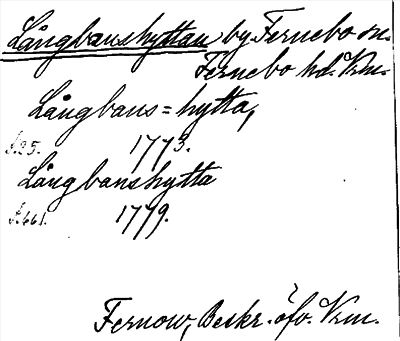 Långbanshyttan by Fernebo sn.
Fernebo hd. Vrm.
Långbans=hytta,
s. 25. 1773.
Långbanshytta
s. 661. 1779.
Fernow, Beskr. öfv. Vrm.